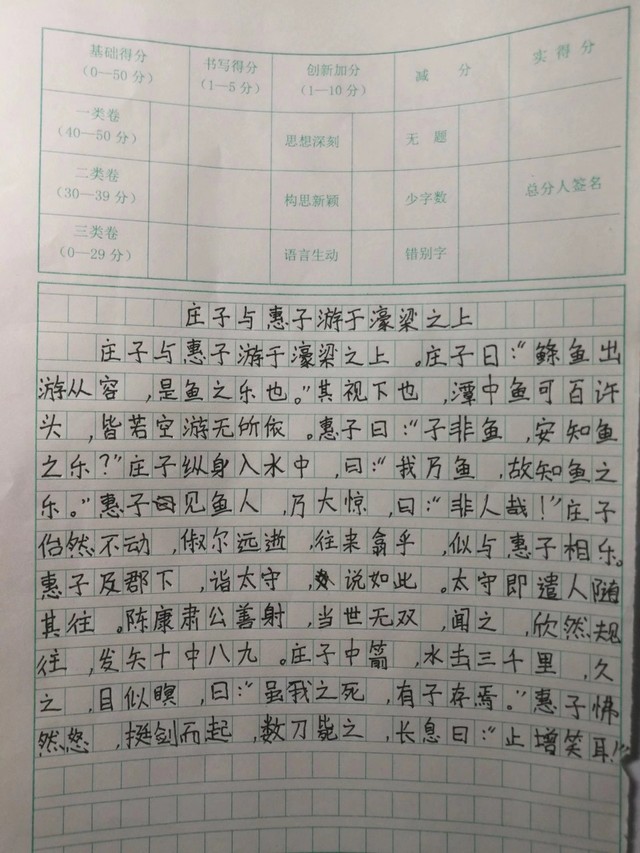 基础得分
（0—50分）
书写得分
（1—5分）
创新加分
（1—10分）
减 分
实得分
一类卷
（40—50分）
思想深刻
无 题
二类卷
（30—39分）
构思新颖
少字数
总分人签名
三类卷
（0—29分）
语言生动
错别字
庄子与惠子游于濠梁之上
庄子与惠子游于濠梁之上。庄子曰：“鲦鱼出
游从容，是鱼之乐也。”其视下也，潭中鱼可百许
头，皆若空游无所依。惠子曰：“子非鱼，安知鱼
之乐？”庄子纵身入水中，曰：“我乃鱼，故知鱼之
乐。”惠子见鱼人，乃大惊，曰：“非人哉！”庄子
佁然不动，俶尔远逝，往来翕乎，似与惠子相乐。
惠子及郡下，诣太守，说如此。太守即遣人随
其往。陈康肃公善射，当世无双，闻之，欣然规
往，发矢十中八九。庄子中箭，水击三千里，久
之，目似瞑，曰：“虽我之死，有子存焉。”惠子怫
然怒，挺剑而起，数刀毙之，长息曰：“止增笑耳！”